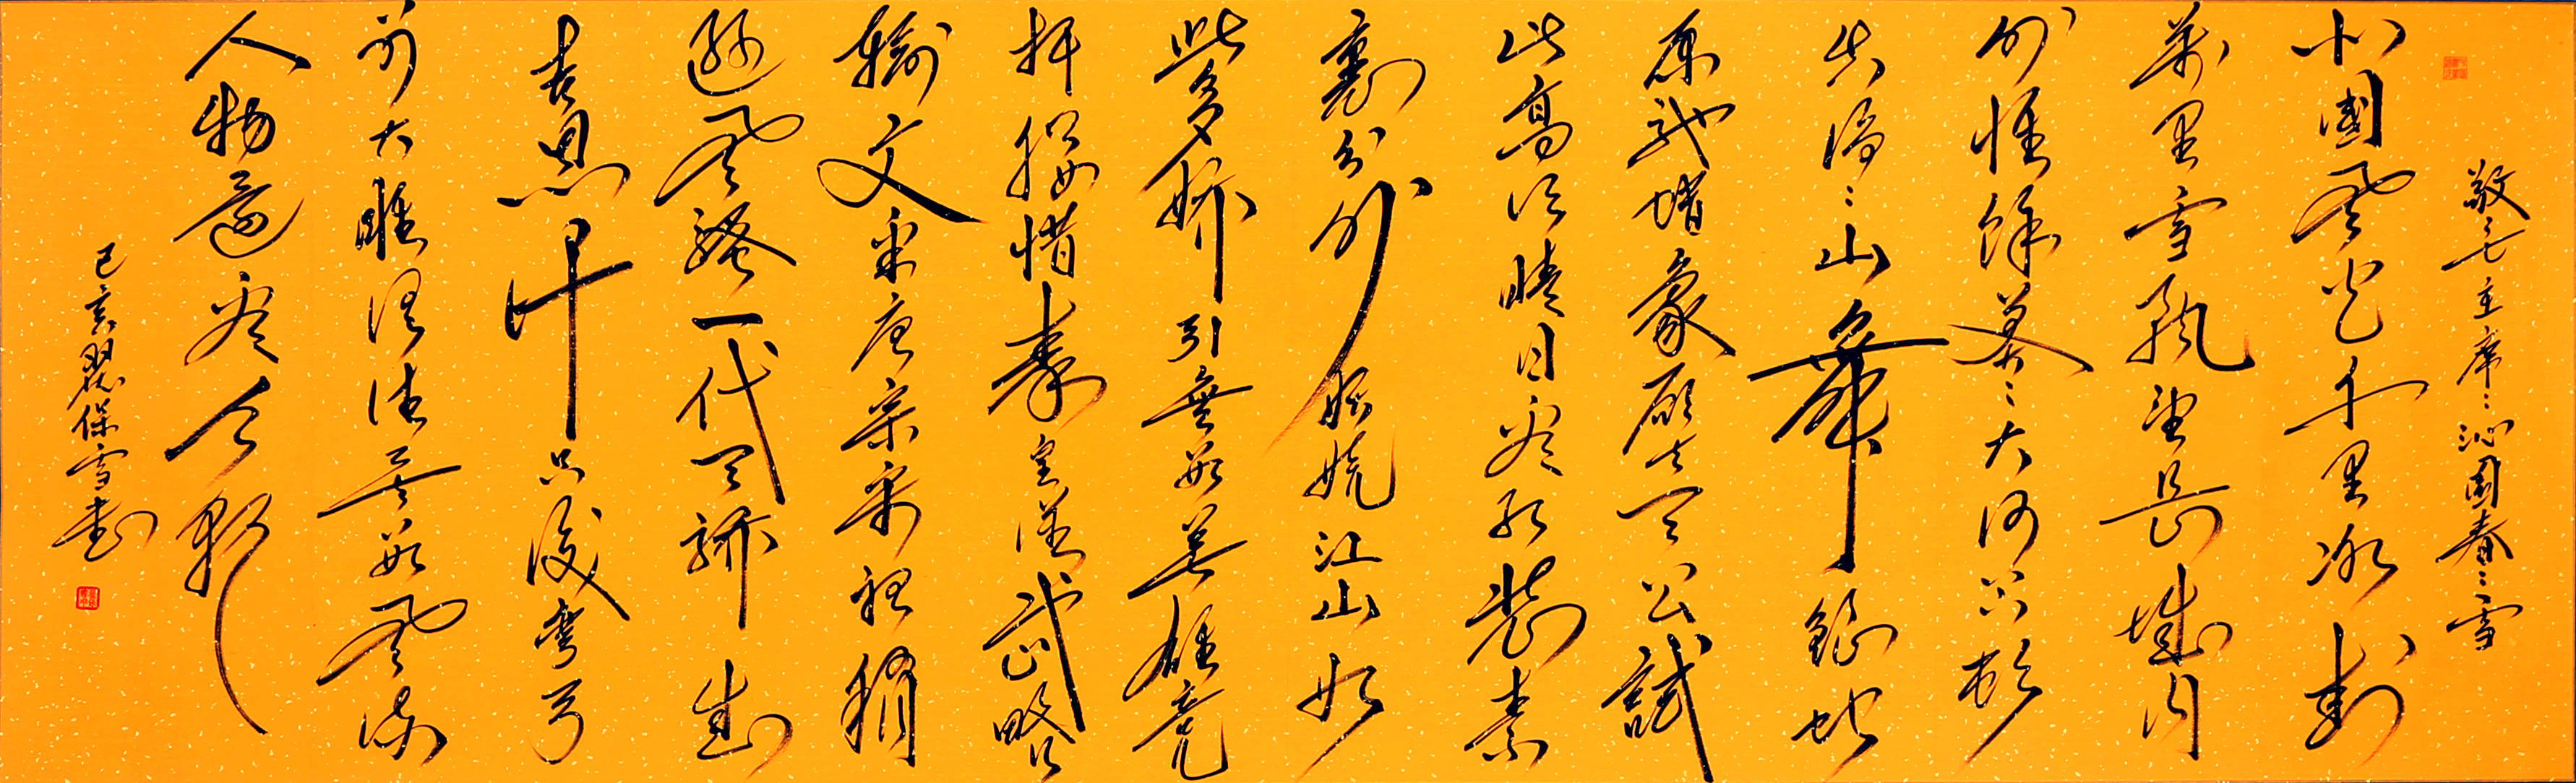 敬毛主席:沁園春:雪
北國風光千里冰封
萬里雪飄望長城内
外惟餘莽:大河上下頓
失滔:山舞銀蛇
原馳蜡象欲与天公試
比高須晴日看紅裝素
裹分外妖嬈江山如
此多嬌引無數英雄競
折腰惜秦皇漢武略
輸文采唐宗宋祖稍
遜風騷一代天驕成
吉思汗只識彎弓
射大雕俱往矣數風流
人物還看今朝
己亥翟保雪書